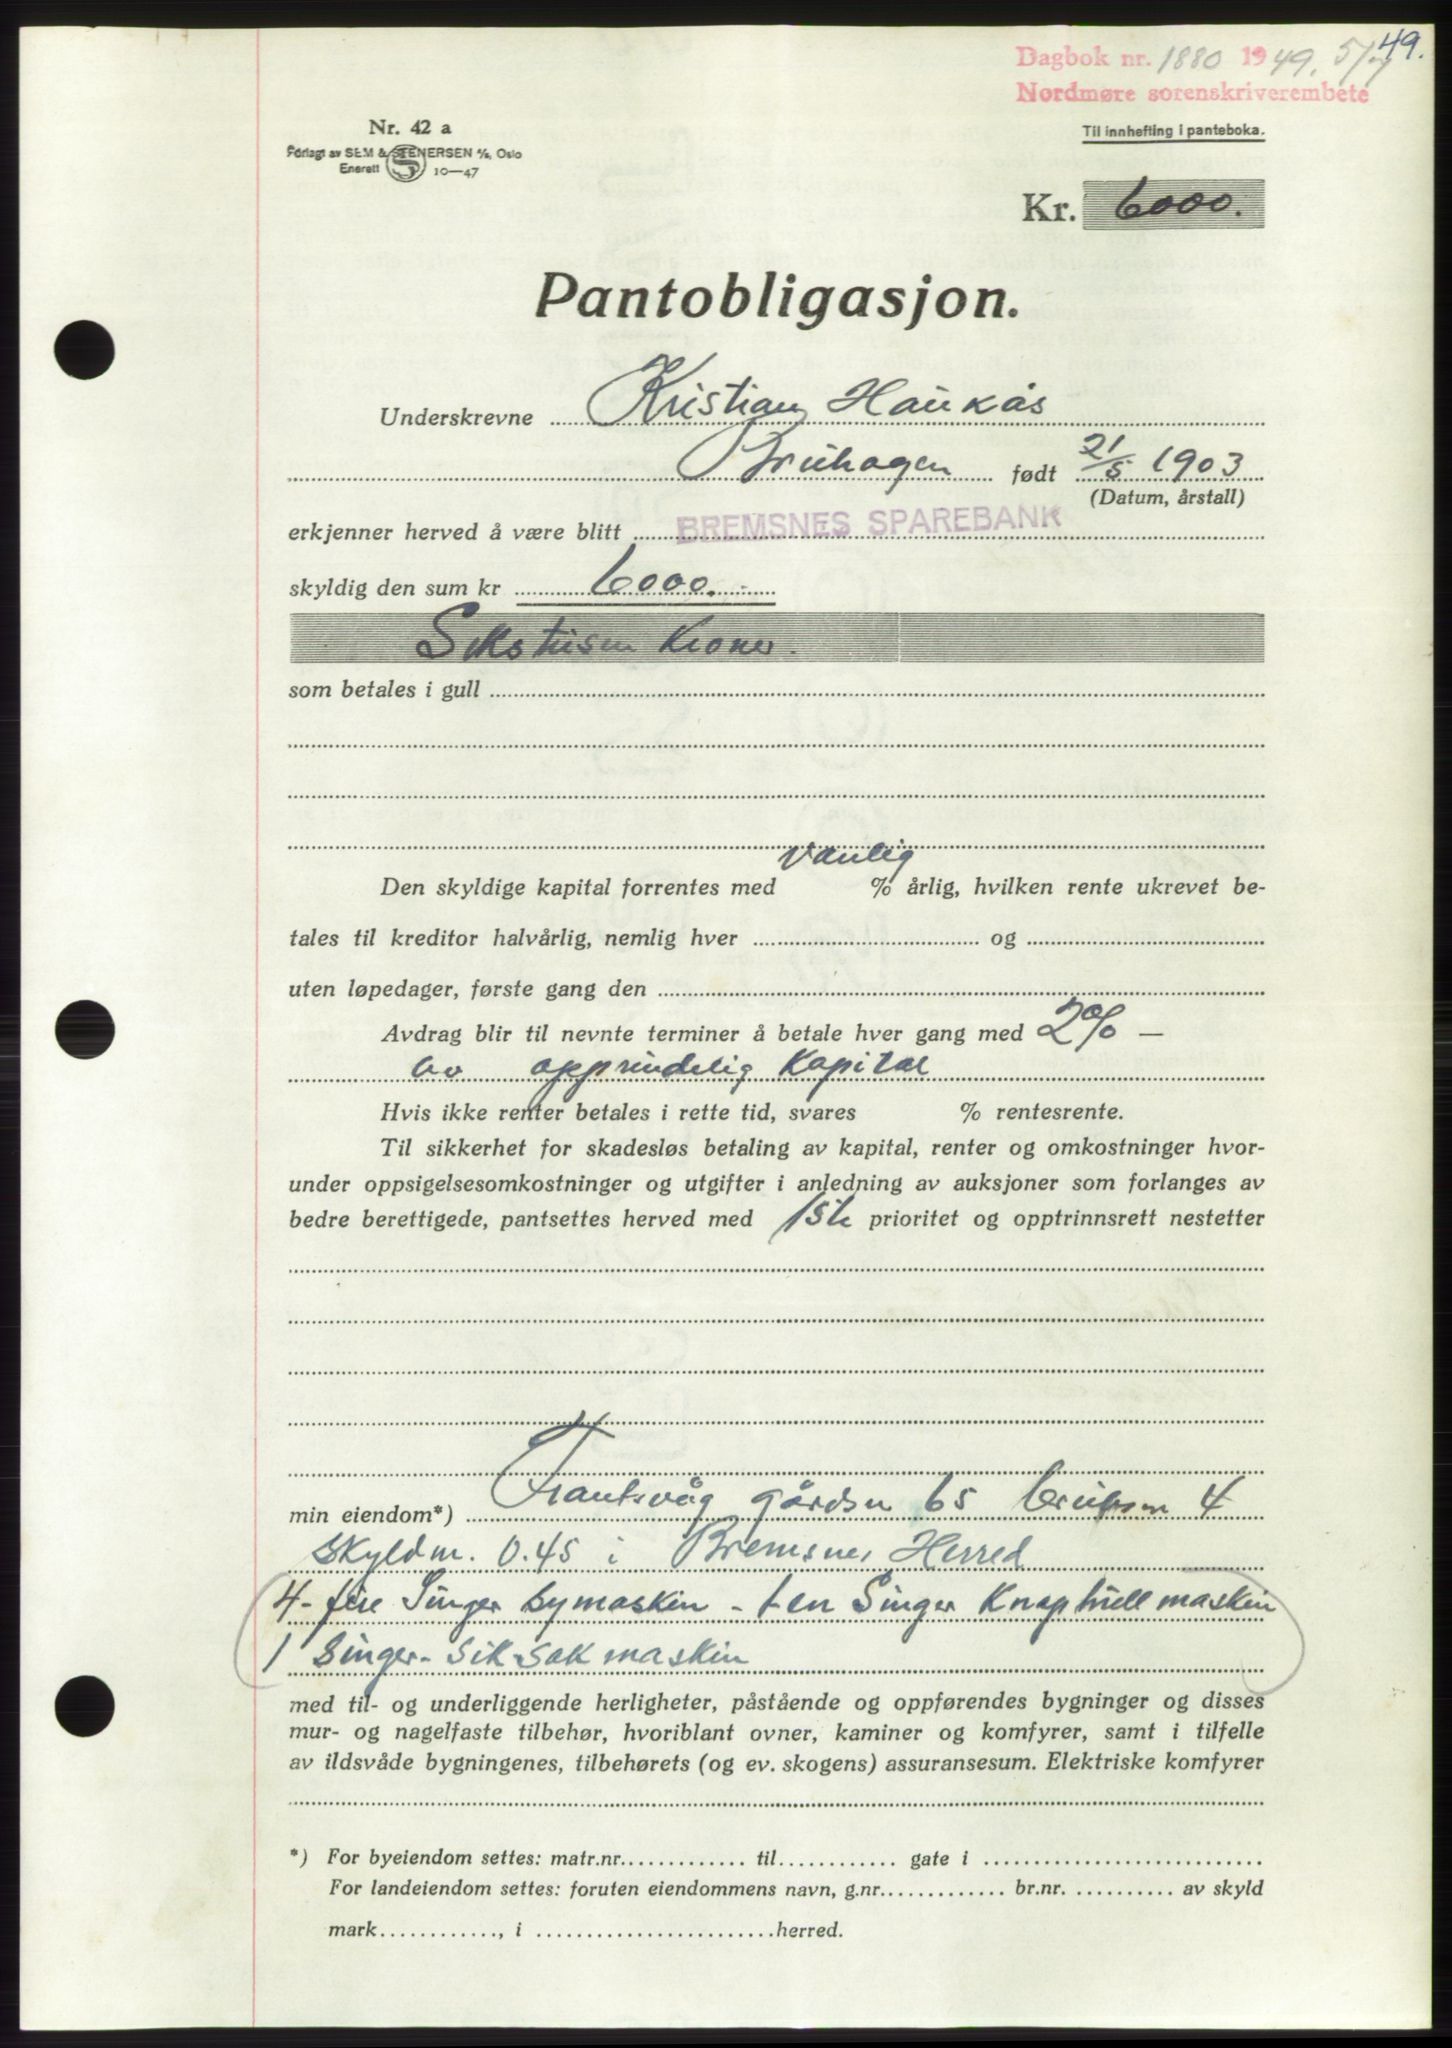 49.
Dagbok nr. 1880 1949. 5/7
Nordmøre sorenskriverembete
Nr. 42 a
Forlagt av SEM & STENERSEN A/S, Oslo
Enerett S 10—47
Til innhefting i panteboka.
Kr. 6000.
Pantobligasjon.
Underskrevne Kristian Haukås
Bruhagen født 21/5 1903
(Datum, årstall)
erkjenner herved å være blitt BREMSNES SPAREBANK
skyldig den sum kr 6000.-
Sekstusen Kroner.
som betales i gull
Den skyldige kapital forrentes med vanlig % årlig, hvilken rente ukrevet be-
tales til kreditor halvårlig, nemlig hver og
uten løpedager, første gang den
Avdrag blir til nevnte terminer å betale hver gang med 2% —
av opprindelig Kapital
Hvis ikke renter betales i rette tid, svares % rentesrente.
Til sikkerhet for skadesløs betaling av kapital, renter og omkostninger hvor-
under oppsigelsesomkostninger og utgifter i anledning av auksjoner som forlanges av
bedre berettigede, pantsettes herved med 1ste prioritet og opptrinnsrett nestetter
min eiendom*) gårdsn 65 bruksn 4
Skyldm. 0.45 i Bremsnes Herred
4- fire Singer symaskin - 1 en Singer Knaphullmaskin
1 Singer- sik-sak maskin
med til- og underliggende herligheter, påstående og oppførendes bygninger og disses
mur- og nagelfaste tilbehør, hvoriblant ovner, kaminer og komfyrer, samt i tilfelle
av ildsvåde bygningenes, tilbehørets (og ev. skogens) assuransesum. Elektriske komfyrer
*) For byeiendom settes: matr.nr. til gate i
For landeiendom settes: foruten eiendommens navn, g.nr. br.nr. av skyld
mark, i herred.